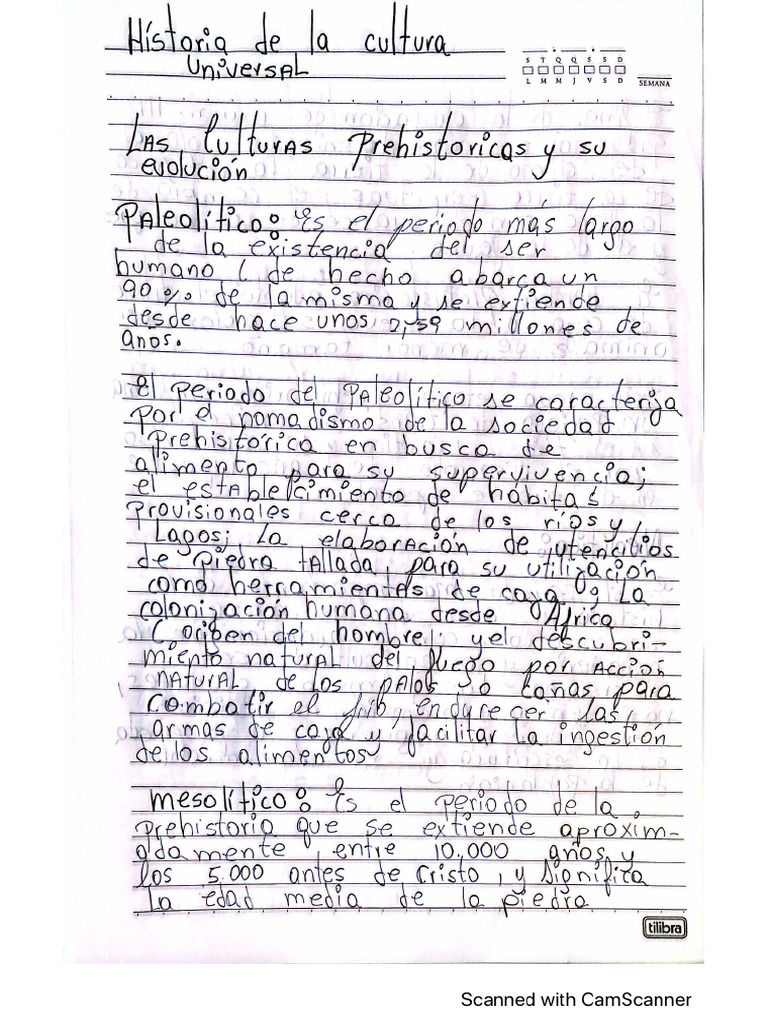 Historia de la cultura
Universal
S T Q Q S S D
L M M J V S D
SEMANA
Las Culturas Prehistoricas y su
evolución
Paleolítico: Es el periodo más largo
de la existencia del ser
humano ( de hecho abarca un
90% de la misma y se extiende
desde hace unos 2,59 millones de
años.
El periodo del Paleolítico se caracteriza
por el nomadismo de la sociedad
Prehistórica en busca de
alimento para su supervivencia;
el establecimiento de hábitas
provisionales cerca de los ríos y
Lagos; La elaboración de
de Piedra tallada, para su utilización
como herramientas de caza y La
colonización humana desde África
( origen del hombre; y el descubri-
miento natural del fuego por acción
natural de los palos o cañas para
combatir el frio, endurecer las
armas de caza y facilitar la ingestion
de los alimentos
mesolítico: Es el periodo de la
prehistoria que se extiende aproxim-
adamente, entre 10.000 años y
los 5.000 antes de Cristo, y significa
la edad media de la piedra
tilibra
Scanned with CamScanner